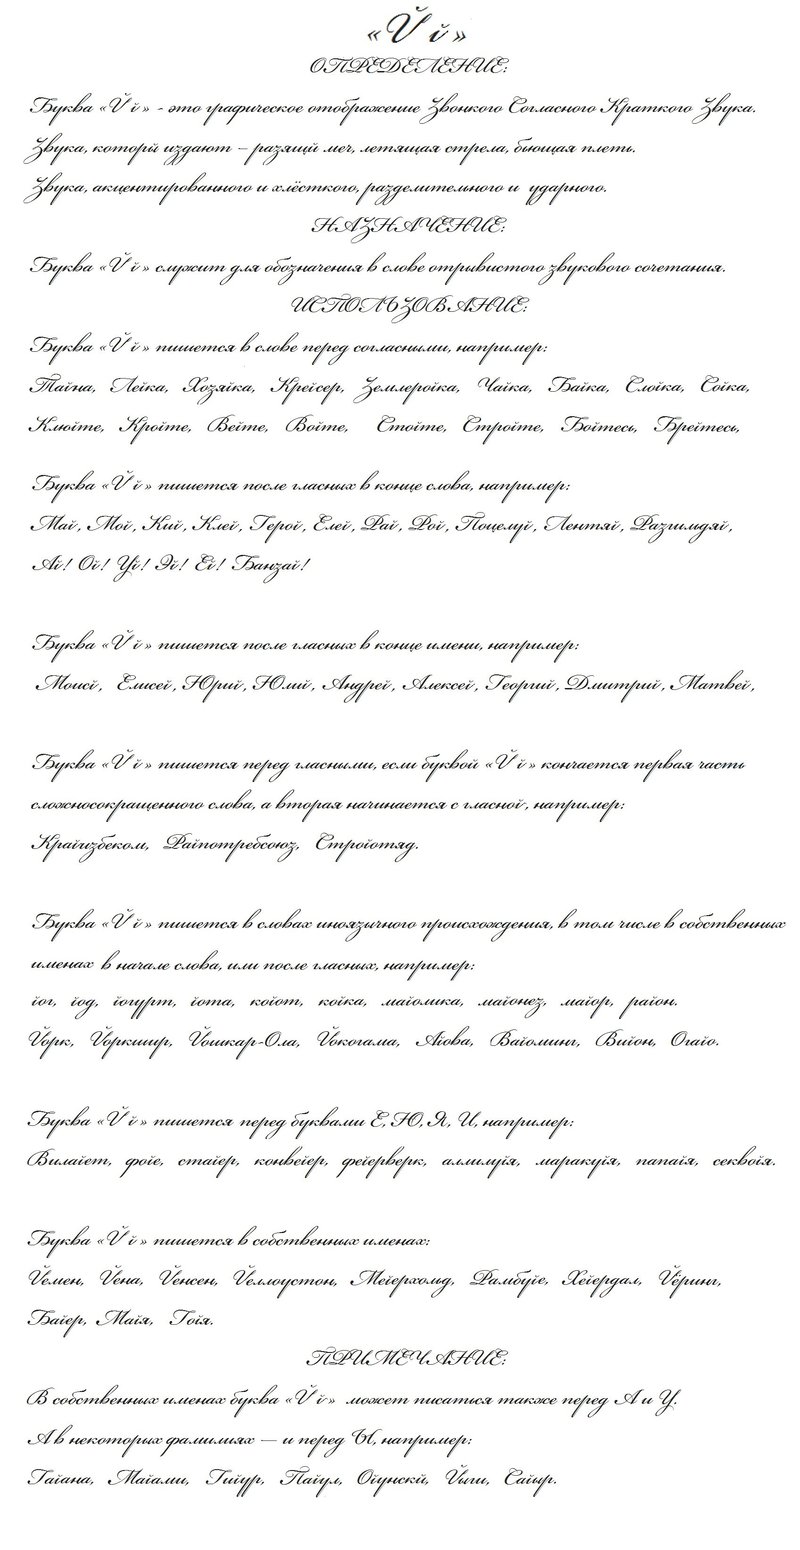 «Й й»
ОПРЕДЕЛЕНИЕ:
Буква «Й й» - это графическое отображение Звонкого Согласного Краткого Звука.
Звука, который издают – разящий меч, летящая стрела, бьющая плеть.
Звука, акцентированного и хлёсткого, разделительного и ударного.
НАЗНАЧЕНИЕ:
Буква «Й й» служит для обозначения в слове отрывистого звукового сочетания.
ИСПОЛЬЗОВАНИЕ:
Буква «Й й» пишется в слове перед согласными, например:
Тайна, Лейка, Хозяйка, Крейсер, Землеройка, Чайка, Байка, Слойка, Сойка,
Клюйте, Кройте, Вейте, Войте, Стойте, Стройте, Бойтесь, Брейтесь,
Буква «Й й» пишется после гласных в конце слова, например:
Май, Мой, Кий, Клей, Герой, Елей, Рай, Рой, Поцелуй, Лентяй, Разгильдяй,
Ай! Ой! Уй! Эй! Ей! Банзай!
Буква «Й й» пишется после гласных в конце имени, например:
Моисй, Елисей, Юрий, Юлий, Андрей, Алексей, Георгий, Дмитрий, Матвей,
Буква «Й й» пишется перед гласными, если буквой «Й й» кончается первая часть
сложносокращенного слова, а вторая начинается с гласной, например:
Крайизбеком, Райпотребсоюз, Стройотряд.
Буква «Й й» пишется в словах иноязычного происхождения, в том числе в собственных
именах в начале слова, или после гласных, например:
йог, йод, йогурт, йота, койот, койка, майолика, майонез, майор, район.
Йорк, Йоркшир, Йошкар-Ола, Йокогама, Айова, Вайоминг, Вийон, Огайо.
Буква «Й й» пишется перед буквами Е, Ю, Я, И, например:
Вилайет, фойе, стайер, конвейер, фейерверк, аллилуйя, маракуйя, папайя, секвойя.
Буква «Й й» пишется в собственных именах:
Йемен, Йена, Йенсен, Йеллоустон, Мейерхольд, Рамбуйе, Хейердал, Йёринг,
Байер, Майя, Гойя.
ПРИМЕЧАНИЕ:
В собственных именах буква «Й й» может писаться также перед А и У.
А в некоторых фамилиях — и перед Ы, например:
Гайана, Майами, Гийур, Пайул, Ойунский, Йыги, Сайыр.